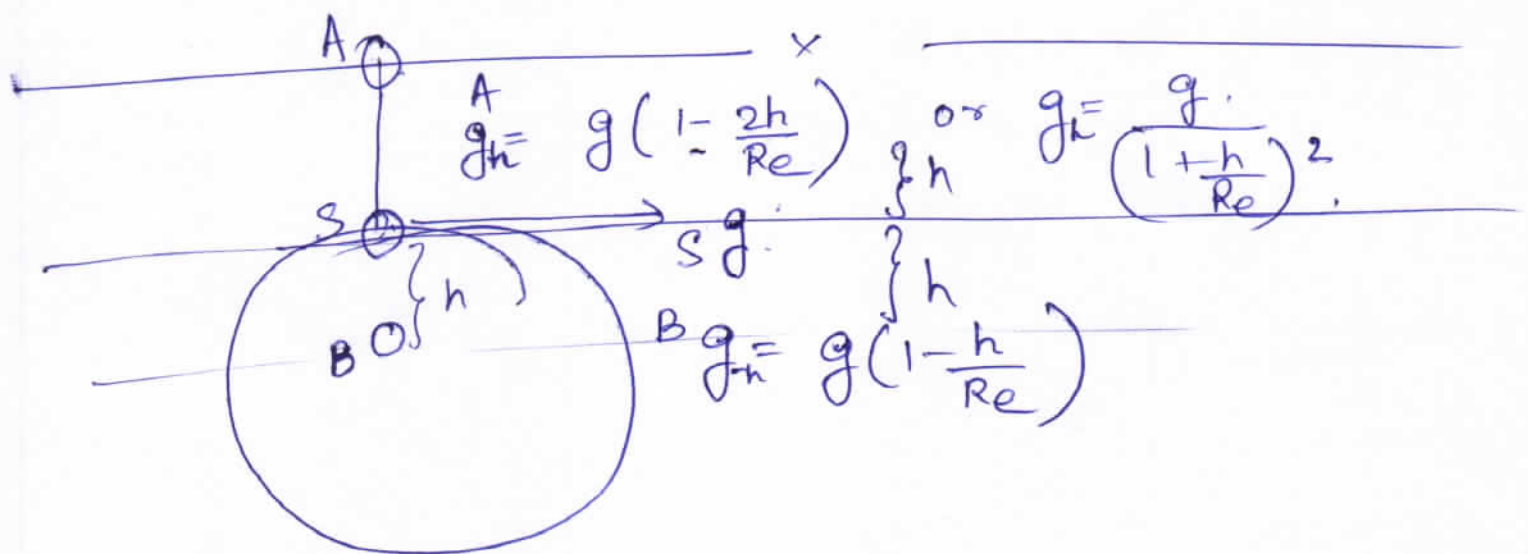 A x
A
g_h = g(1 - 2h/Re) } h or g_h = g. / (1 + h/Re)^2.
S S g.
} h } h
B B g_-h = g(1 - h/Re)